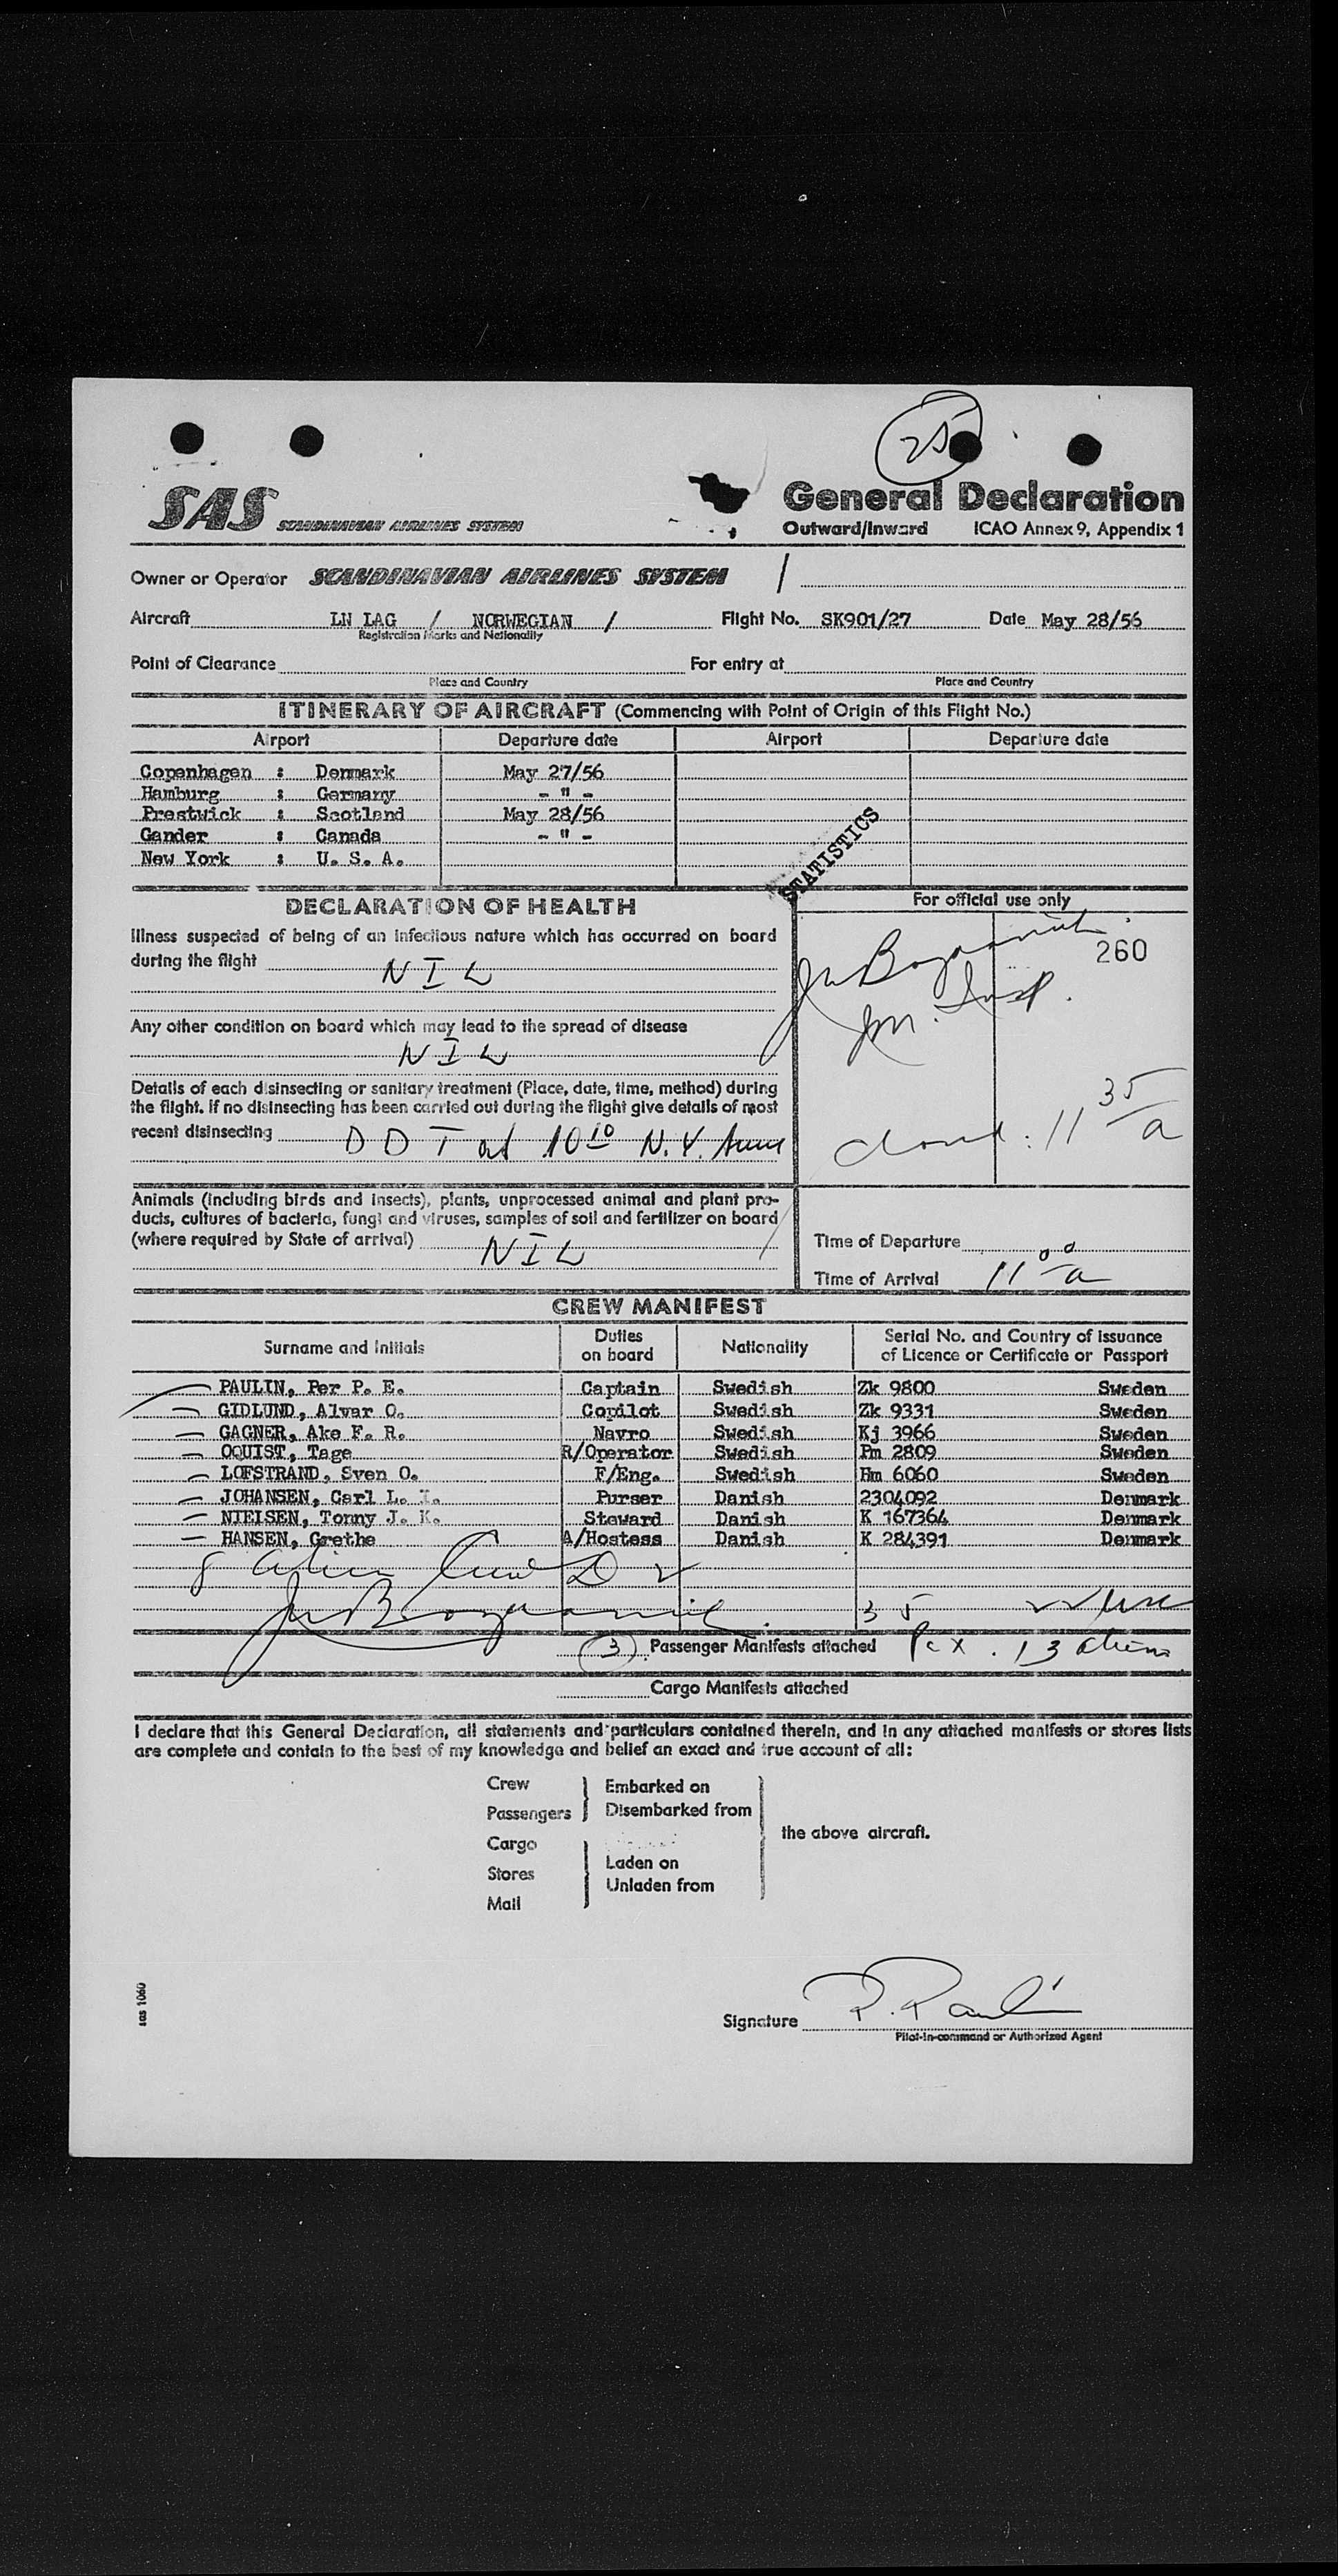 25
SAS SCANDINAVIAN AIRLINES SYSTEM
General Declaration
Outward/Inward ICAO Annex 9, Appendix 1
Owner or Operator SCANDINAVIAN AIRLINES SYSTEM /
Aircraft LN LAG / NORWEGIAN / Flight No. SK901/27 Date May 28/56
Registration Marks and Nationality
Point of Clearance For entry at
Place and Country Place and Country
ITINERARY OF AIRCRAFT (Commencing with Point of Origin of this Flight No.)
Airport Departure date Airport Departure date
Copenhagen : Denmark May 27/56
Hamburg : Germany - " -
Prestwick : Scotland May 28/56
Gander : Canada - " -
New York : U. S. A.
STATISTICS
DECLARATION OF HEALTH
Illness suspected of being of an infectious nature which has occurred on board
during the flight NIL
Any other condition on board which may lead to the spread of disease
NIL
Details of each disinsecting or sanitary treatment (Place, date, time, method) during
the flight. If no disinsecting has been carried out during the flight give details of most
recent disinsecting DDT at 10 10 N.Y. time
Animals (including birds and insects), plants, unprocessed animal and plant pro-
ducts, cultures of bacteria, fungi and viruses, samples of soil and fertilizer on board
(where required by State of arrival) NIL
For official use only
260
Im. Insp.
closed: 11 35 a
Time of Departure
Time of Arrival 11 00 a
CREW MANIFEST
Surname and Initials Duties on board Nationality Serial No. and Country of issuance of Licence or Certificate or Passport
PAULIN, Per P. E. Captain Swedish Zk 9800 Sweden
GIDLUND, Alvar O. Copilot Swedish Zk 9331 Sweden
GAGNER, Ake F. R. Navro Swedish Kj 3966 Sweden
OQUIST, Tage R/Operator Swedish Pm 2809 Sweden
LOFSTRAND, Sven O. F/Eng. Swedish Hm 6060 Sweden
JOHANSEN, Carl L. I. Purser Danish 2304092 Denmark
NIELSEN, Tonny J. K. Steward Danish K 167364 Denmark
HANSEN, Grethe A/Hostess Danish K 284391 Denmark
8 alien Crew D
35 22 USC
3 Passenger Manifests attached Pax. 13 aliens
Cargo Manifests attached
I declare that this General Declaration, all statements and particulars contained therein, and in any attached manifests or stores lists
are complete and contain to the best of my knowledge and belief an exact and true account of all:
Crew
Passengers
Embarked on
Disembarked from
Cargo
Stores
Mail
Laden on
Unladen from
the above aircraft.
Signature P. Paulin
Pilot-in-command or Authorized Agent
sas 1060